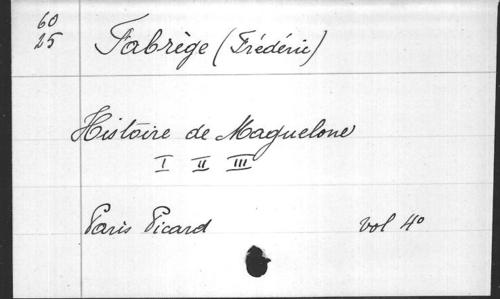 60
25
Fabrège (Frédéric)
Histoire de Maguelone
I II III
Paris Picard vol 4º